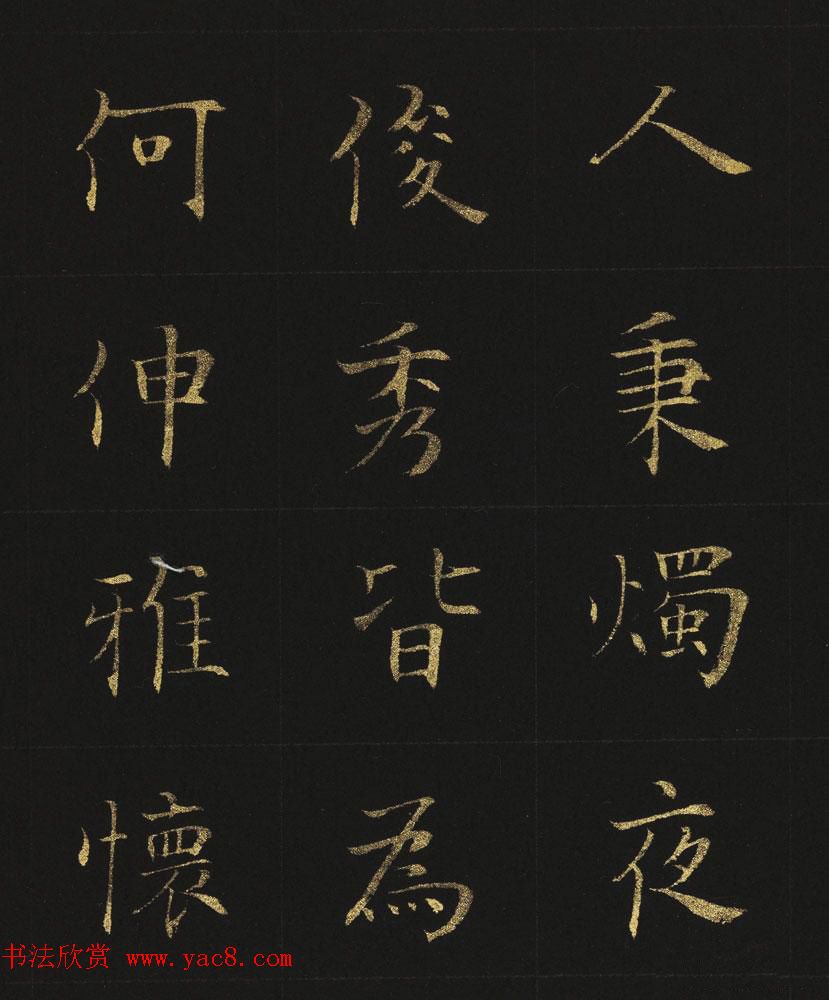 人秉燭夜
俊秀皆為
何伸雅懷
书法欣赏 www.yac8.com